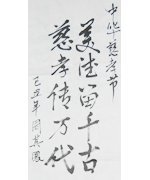 中华慈孝节
美德留千古
慈孝传万代
己丑年周其凤